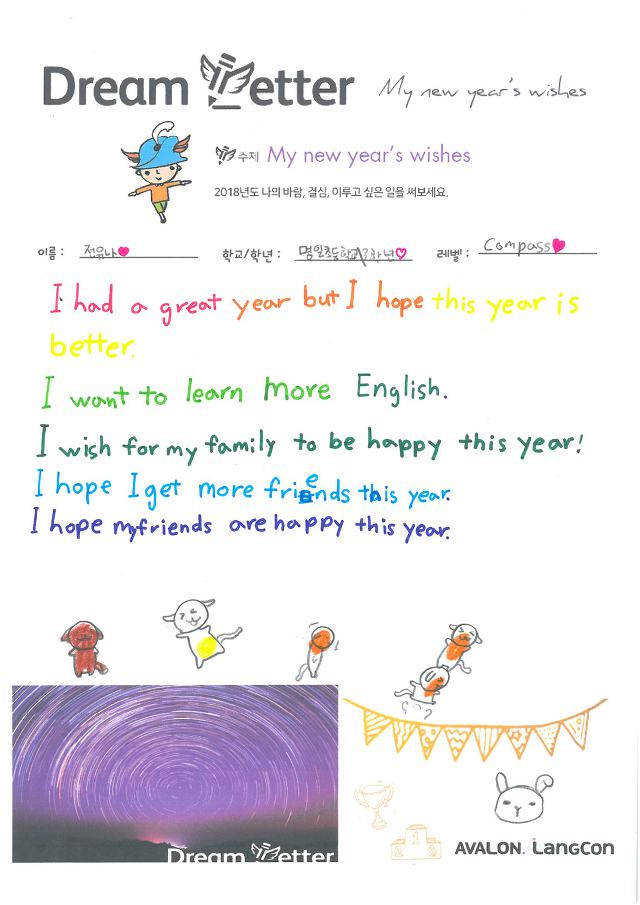 Dream Letter My new year's wishes
주제 My new year's wishes
2018년도 나의 바람, 결심, 이루고 싶은 일을 써보세요.
이름 : 전유나 학교/학년 : 명일초등학교\3학년 레벨 : Compass
I had a great year but I hope this year is
better.
I want to learn more English.
I wish for my family to be happy this year!
I hope I get more friends this year.
I hope my friends are happy this year.
Dream Letter
AVALON LangCon